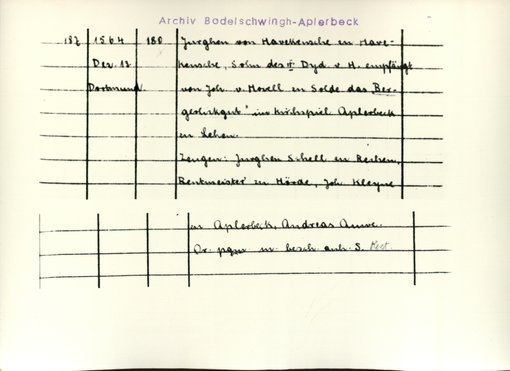 Archiv Bodelschwingh-Aplerbeck
187 1564 180 Jurghen von Havekensche en Have-
Dez. 12 kensche, Sohn des Dyd. v. H. empfängt
Dortmund. von Joh. v. Morell en Solde das "Ber-
gerhofsgut" im Kirchspiel Aplerbeck
en Lehen.
Zeugen: Jurghen Schell en Berhem,
Rentmeister en Hörde, Joh. Kleyne
en Aplerbeck, Andreas
Or. pgm. m. besch. anh. S. Rest.